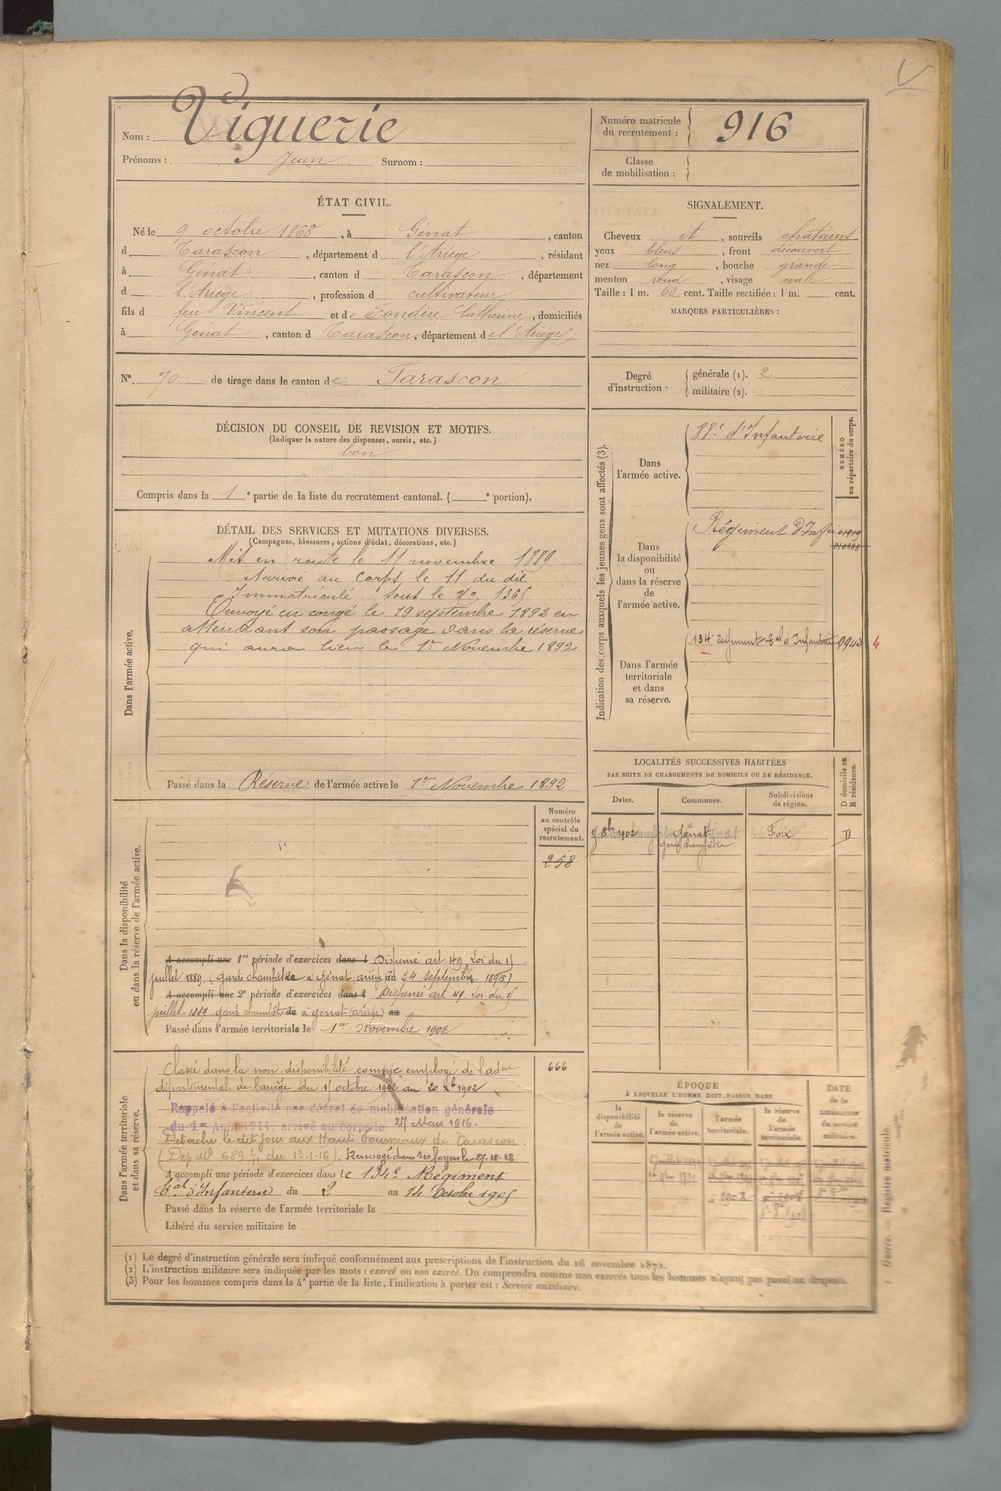 Nom : Viguerie
Prénoms : Jean Surnom :
Numéro matricule du recrutement : 916
Classe de mobilisation :
ÉTAT CIVIL.
Né le 9 octobre 1868, à Génat, canton
d Tarascon, département d l'Ariège, résidant
à Génat, canton d Tarascon, département
d l'Ariège, profession d cultivateur
fils d feu Vincent et de Fondère Catherine, domiciliés
à Génat, canton d Tarascon, département de l'Ariège
N° 70 de tirage dans le canton de Tarascon
SIGNALEMENT.
Cheveux et, sourcils chatains
yeux bleus, front découvert
nez long, bouche grande
menton rond, visage ovale
Taille : 1 m. 60 cent. Taille rectifiée : 1 m. cent.
MARQUES PARTICULIÈRES :
Degré d'instruction. générale (1). 2
militaire (2).
DÉCISION DU CONSEIL DE REVISION ET MOTIFS.
(Indiquer la nature des dispenses, sursis, etc.)
bon
Compris dans la 1e partie de la liste du recrutement cantonal. ( e portion).
DÉTAIL DES SERVICES ET MUTATIONS DIVERSES.
(Campagnes, blessures, actions d'éclat, décorations, etc.)
Dans l'armée active.
Mis en route le 11 novembre 1889
Arrivé au corps le 11 du dit
Immatriculé sous le No 1365
Envoyé en congé le 19 septembre 1892 en
attendant son passage dans la réserve
qui aura lieu le 1er Novembre 1892
Passé dans la Réserve de l'armée active le 1er Novembre 1892
Indication des corps auxquels les jeunes gens sont affectés (3).
NUMÉRO au répertoire du corps.
Dans l'armée active.
88e d'Infanterie
Dans la disponibilité ou dans la réserve de l'armée active.
Régiment d'Infie
Dans l'armée territoriale et dans sa réserve.
134e régiment tal d'Infanterie
4
LOCALITÉS SUCCESSIVES HABITÉES
PAR SUITE DE CHANGEMENTS DE DOMICILE OU DE RÉSIDENCE.
D domicile ou R résidence.
Dates. Communes. Subdivisions de région.
Génat Foix D
garde champêtre
Dans la disponibilité ou dans la réserve de l'armée active.
Numéro au contrôle spécial du recrutement.
258
A accompli une 1re période d'exercices dans l Dispensé art 49 Loi du 15
juillet 1889 (garde champêtre à Génat ariège du 24 septembre 1895)
A accompli une 2e période d'exercices dans l Dispensé art 49 Loi du 15
juillet 1889 garde champêtre à génat (ariège) au
Passé dans l'armée territoriale le 1er Novembre 1902
Dans l'armée territoriale et dans sa réserve.
666
Classé dans la non disponibilité comme employé de l'adon
départementale de l'ariège du 15 octobre 1902 au 20 1902
Rappelé à l'activité par décret de mobilisation générale
du 1er Août 1914; arrivé au corps le 27 Mars 1916.
Détaché le dit jour aux Hauts Fourneaux de Tarascon
(Dép. 689 du 13-1-16). Renvoyé dans ses foyers le
A accompli une période d'exercices dans le 134e Régiment
tal d'Infanterie du 2 au 14 Octobre 1905
Passé dans la réserve de l'armée territoriale le
Libéré du service militaire le
ÉPOQUE
À LAQUELLE L'HOMME DOIT PASSER DANS
DATE de la LIBÉRATION du service militaire.
la disponibilité de l'armée active. la réserve de l'armée active. l'armée territoriale. la réserve de l'armée territoriale.
(1) Le degré d'instruction générale sera indiqué conformément aux prescriptions de l'instruction du 26 novembre 1872.
(2) L'instruction militaire sera indiquée par les mots : exercé ou non exercé. On comprendra comme non exercés tous les hommes n'ayant pas passé au drapeau.
(3) Pour les hommes compris dans la 4e partie de la liste, l'indication à porter est : Service auxiliaire.
Guerre. — Registre matricule.